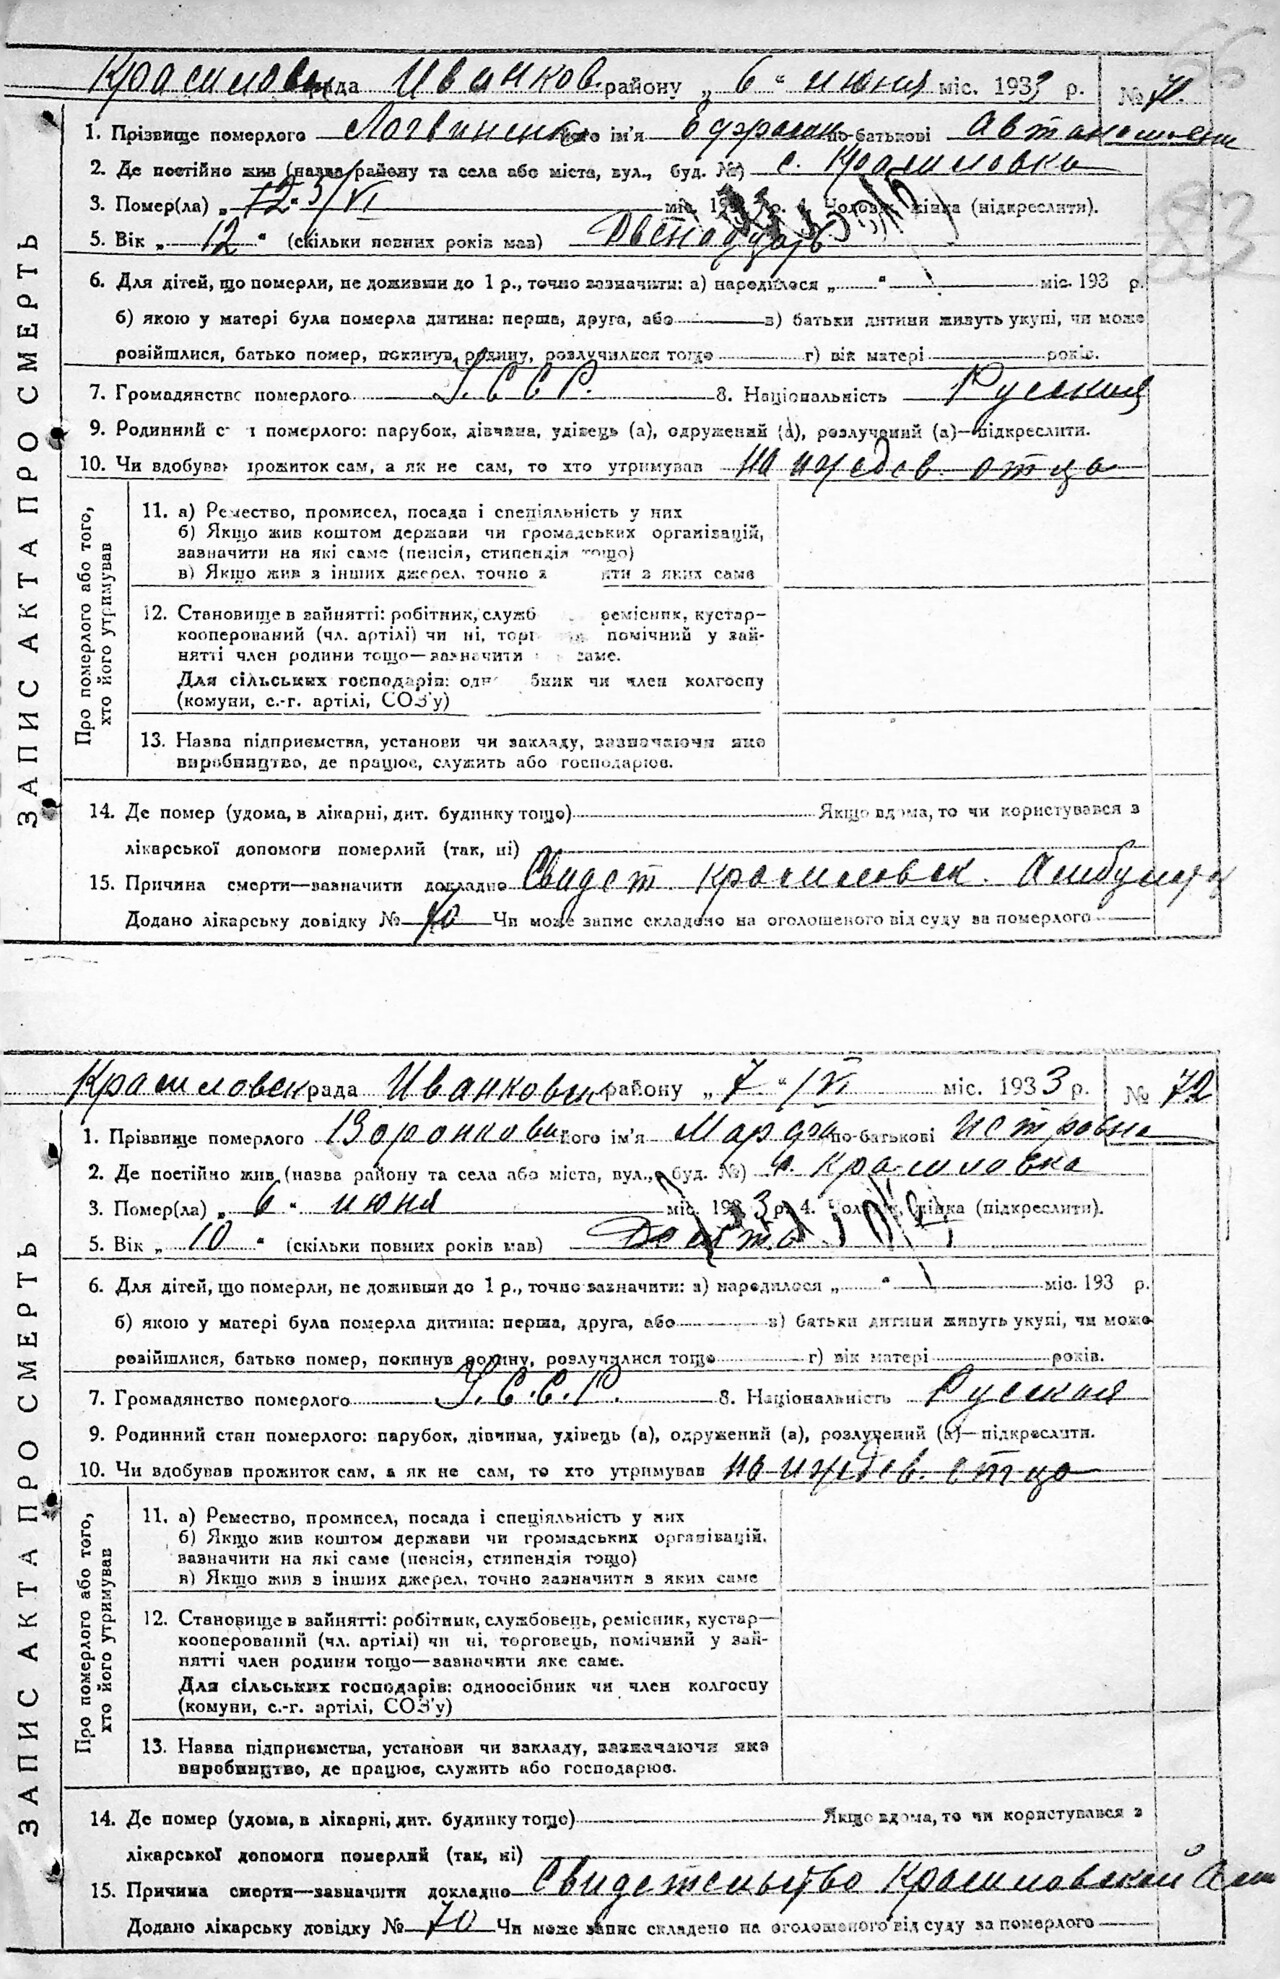 ЗАПИС АКТА ПРО СМЕРТЬ
Красиловск рада Иванков. району „ 6 “ июня міс. 1933 р. № 71.
1. Прізвище померлого Логвиненко його ім'я по-батькові
2. Де постійно жив (назва району та села або міста, вул., буд. №) с. Красиловка
3. Помер(ла) „ “ міс. 193 р. 4. Чоловік, жінка (підкреслити).
5. Вік „ 12 “ (скільки повних років мав) Двенадцать
6. Для дітей, що померли, не доживши до 1 р., точно зазначити: а) народилося „ “ міс. 193 р.
б) якою у матері була померла дитина: перша, друга, або в) батьки дитини живуть укупі, чи може
розійшлися, батько помер, покинув родину, розлучилися тощо г) вік матері років.
7. Громадянство померлого У.С.С.Р. 8. Національність Русская
9. Родинний с н померлого: парубок, дівчина, удівець (а), одружений (а), розлучений (а)—підкреслити.
10. Чи вдобував прожиток сам, а як не сам, то хто утримував на иждев. отца
Про померлого або того,
хто його утримував
11. а) Ремество, промисел, посада і спеціяльність у них
б) Якщо жив коштом держави чи громадських організацій,
зазначити на які саме (пенсія, стипендія тощо)
в) Якщо жив з інших джерел, точно з ити з яких саме
12. Становище в зайнятті: робітник, служб ремісник, кустар—
кооперований (чл. артілі) чи ні, торг помічний у зай-
нятті член родини тощо—зазначити саме.
Для сільських господарів: одн бник чи член колгоспу
(комуни, с.-г. артілі, СОЗ'у)
13. Назва підприємства, установи чи закладу, зазначаючи яке
виробництво, де працює, служить або господарює.
14. Де помер (удома, в лікарні, дит. будинку тощо) Якщо вдома, то чи користувався з
лікарської допомоги померлий (так, ні)
15. Причина смерти—зазначити докладно Свидет. Красиловск. Амбулат
Додано лікарську довідку № 70 Чи може запис складено на оголошеного від суду за померлого
ЗАПИС АКТА ПРО СМЕРТЬ
Красиловск рада Иванковск району „ 7 “ VI міс. 1933 р. № 72
1. Прізвище померлого його ім'я Марфа по-батькові Петровна
2. Де постійно жив (назва району та села або міста, вул., буд. №) с. Красиловка
3. Помер(ла) „ 6 “ июня міс. 1933 р. 4. Чоловік, жінка (підкреслити).
5. Вік „ 10 “ (скільки повних років мав) Десять
6. Для дітей, що померли, не доживши до 1 р., точно зазначити: а) народилося „ “ міс. 193 р.
б) якою у матері була померла дитина: перша, друга, або в) батьки дитини живуть укупі, чи може
розійшлися, батько помер, покинув родину, розлучилися тощо г) вік матері років.
7. Громадянство померлого У.С.С.Р. 8. Національність Русская
9. Родинний стан померлого: парубок, дівчина, удівець (а), одружений (а), розлучений (а)—підкреслити.
10. Чи вдобував прожиток сам, а як не сам, то хто утримував на иждев. отца
Про померлого або того,
хто його утримував
11. а) Ремество, промисел, посада і спеціяльність у них
б) Якщо жив коштом держави чи громадських організацій,
зазначити на які саме (пенсія, стипендія тощо)
в) Якщо жив з інших джерел, точно зазначити з яких саме
12. Становище в зайнятті: робітник, службовець, ремісник, кустар—
кооперований (чл. артілі) чи ні, торговець, помічний у зай-
нятті член родини тощо—зазначити яке саме.
Для сільських господарів: одноосібник чи член колгоспу
(комуни, с.-г. артілі, СОЗ'у)
13. Назва підприємства, установи чи закладу, зазначаючи яке
виробництво, де працює, служить або господарює.
14. Де помер (удома, в лікарні, дит. будинку тощо) Якщо вдома, то чи користувався з
лікарської допомоги померлий (так, ні)
15. Причина смерти—зазначити докладно Свидетельство Красиловской Ам
Додано лікарську довідку № 70 Чи може запис складено на оголошеного від суду за померлого